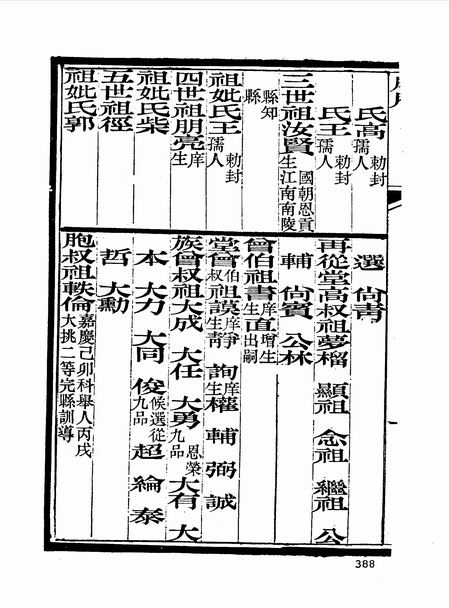 氏高勅封孺人
氏王勅封孺人
三世祖汝賢國朝恩貢生江南南陵
縣知縣
祖妣氏王勅封孺人
四世祖朋亮庠生
祖妣氏柴
五世祖徑
祖妣氏郭
選 尚青
再從堂高叔祖夢榴 顯祖 念祖 繼祖 公
輔 尚賓 公林
曾伯祖書庠生 直增生出嗣
堂曾伯叔祖謨庠生 靜 詢庠生 權 輔 弼 誠
族曾叔祖大成 大任 大勇恩榮九品 大有 大
本 大力 大同 俊候選從九品 超 綸 泰
哲 大勳
胞叔祖軼倫嘉慶己卯科舉人丙戌大挑二等完縣訓導
388